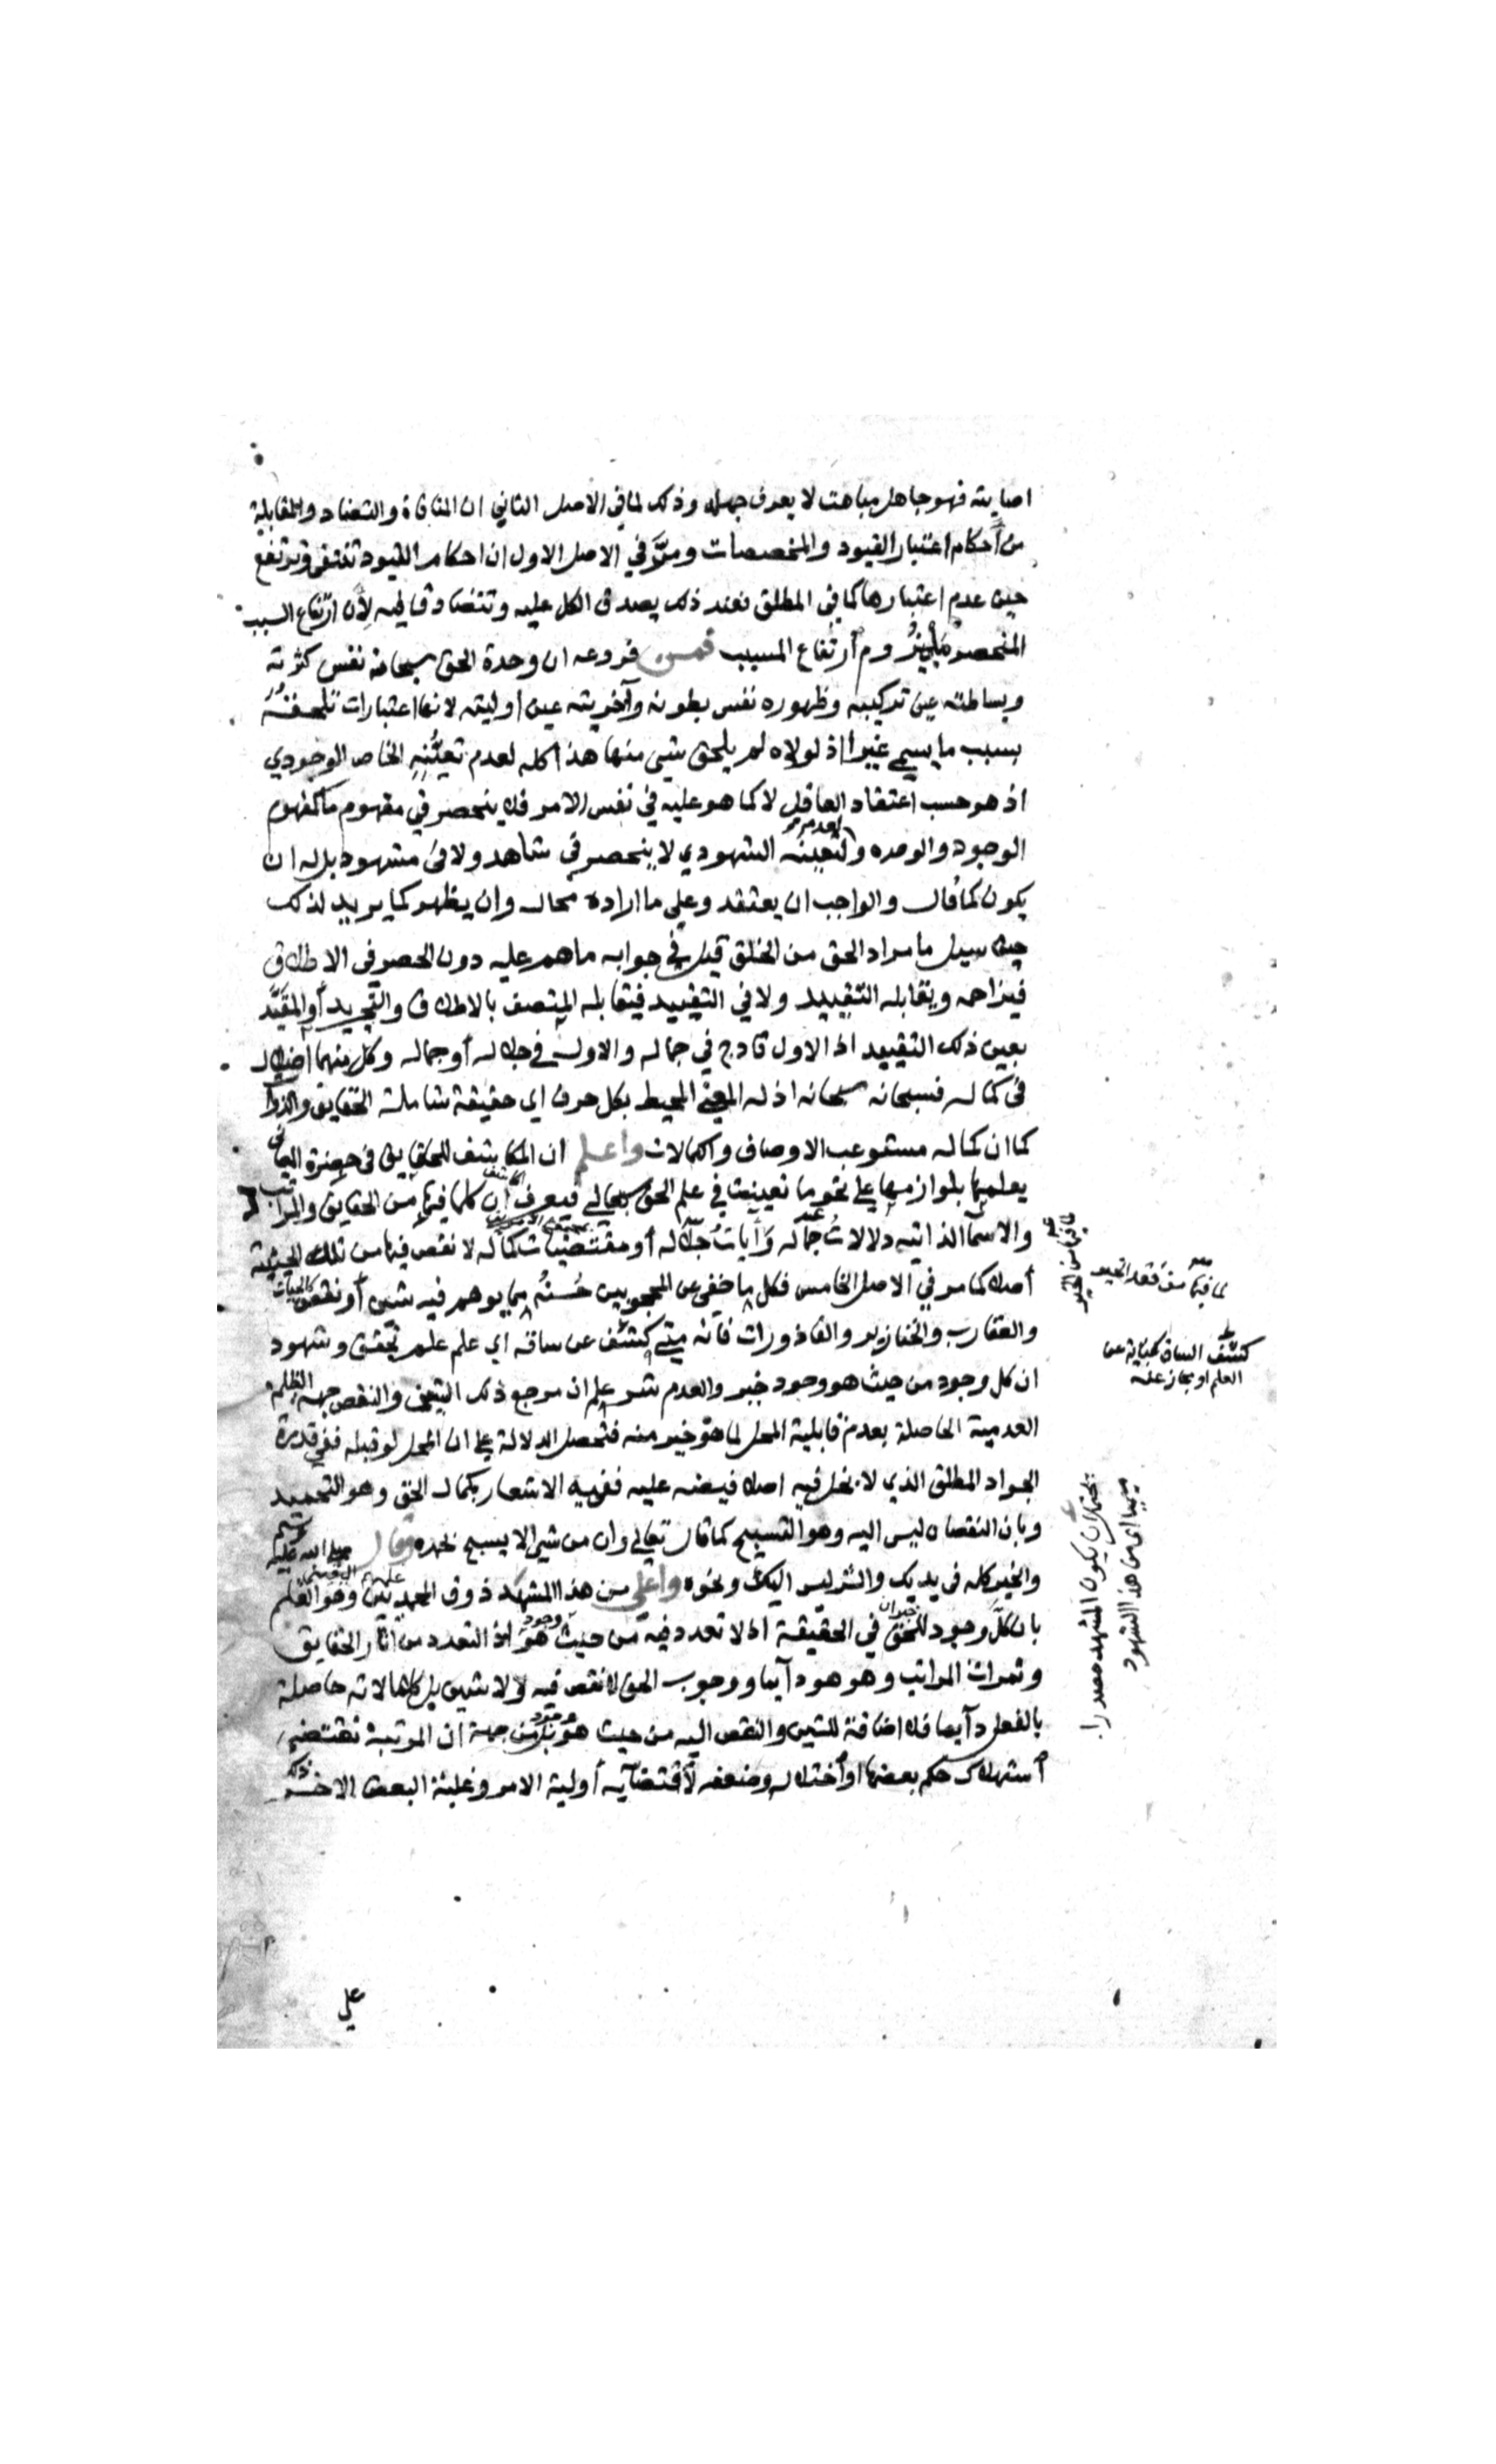 اصابته فهو جاهل مباهت لا يعرف جهله وذلك لما في الاصل الثاني ان المنافاة والتضاد والمقابلة
من أحكام اعتبار القيود والمخصصات ومرّ في الاصل الاول ان احكام القيود تنتفي وترتفع
حين عدم اعتبارها كما في المطلق فعند ذلك يصدق الكل عليه وتتصادق اليه لأن ارتفاع السبب
المنحصر ملزوم ارتفاع المسبب فمن فروعه ان وحدة الحق سبحانه نفس كثرته
وبساطته عين تركيبه وظهوره نفس بطونه وآخريته عين اوليته لانها اعتبارات تلحقه
بسبب ما يسمى غيرا اذ لولاه لم يلحق شيئ منها هذا كله لعدم تعيّنه الخاص الوجودي
اذ هو حسب اعتقاد العاقل لا كما هو عليه في نفس الامر فلا ينحصر في مفهوم ما كمفهوم
الوجود والوحده والتعينه الشهودي لا ينحصر في شاهد ولا في مشهود بل له ان
يكون كما قال والواجب ان يعتقد وعلى ما اراده محال وان يظهر كما يريد لذلك
حين سيل ما مراد الحق من الخلق قيل في جوابه ما هم عليه دون الحصر في الاطلاق
فيزاحمه ويقابله التقييد ولا في التقييد فيقابله المتصف بالاطلاق والتجريد أو المقيّد
بعين ذلك التقييد اذ الاول قادح في جماله والاول في جلاله أو جماله وكل منهما اخلال
في كماله فسبحانه سبحانه اذ له المعنى المحيط بكل حرف اي حقيقة شاملة الحقايق والذوات
كما ان كماله مستوعب الاوصاف والكمالات واعلم ان المكاشف للحقايق في حضرة المعاني
يعلمها بلوازمها على نحو ما تعينت في علم الحق تعالى فيعرف ان كلما فيها من الحقايق والمراتب
والاسمآ الذاتيه دلالات جماله وآيات جلاله أو مقتضيات كماله لا نقص فيها من تلك الحيثية
أصلا كما مر في الاصل الخامس فكل ما خفي عن المحجوبين حُسنه مما يوهم فيه شين أو نقص كالحيات
والعقارب والخنازير والقاذورات فانه متى كشف عن ساقه اي علم علم تحقق وشهود
ان كل وجود من حيث هو وجود خير والعدم شر علم ان مرجع ذلك الشين والنقص جهة الظلم
العدمية الحاصلة بعدم قابلية المحل لما هو خير منه فتحصل الدلالة على ان المحل لو قبله ففي قدرة
الجواد المطلق الذي لا بخل فيه اصلا فيضه عليه ففيه الاشعار بكمال الحق وهو التحميد
وبان النقصان ليس اليه وهو التسبيح كما قال تعالى وان من شي الا يسبح بحمده وقال صلى الله عليه وسلم
والخير كله في يديك والشر ليس اليك ونحوه واعلى من هذا المشهد ذوق المحمديين وهو العلم
بان كل وجود للحق في الحقيقة اذ لا تعدد فيه من حيث هو وجود اذ التعدد من آثار الحقايق
وثمرات المراتب وهو هو دآيما ووجوب الحق لا نقص فيه ولا شين بل كمالاته حاصلة
بالفعل دآيما فلا اضافة للشين والنقص اليه من حيث هو بل من جهة ان المرتبة تقتضي
أستهلاك حكم بعضها أو أختلاله وضعفه لأقتضآيه أولية الامر وغلبة البعض الاخر
كشف الساق كناية عن
العلم او مجاز عنه
يحتمل ان يكون المشهد مصدرا
ميميا اى من هذا الشهود
على